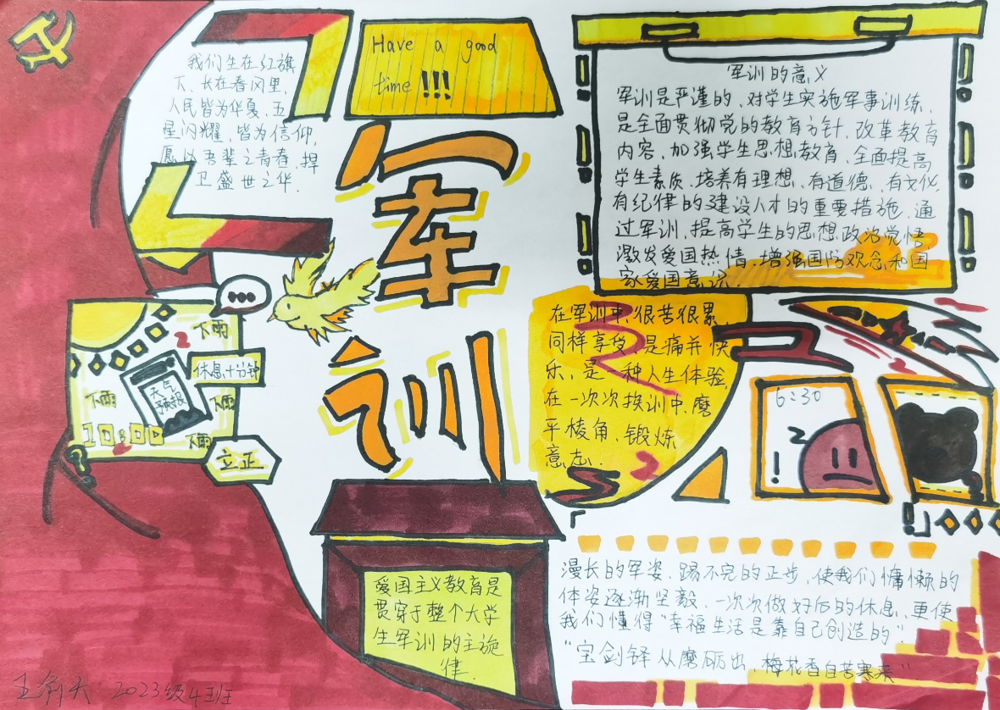 我们生在红旗
下、长在春风里,
人民皆为华夏,五
星闪耀,皆为信仰,
愿以吾辈之青春,捍
卫盛世之华.
Have a good
time !!!
军
训
军训的意义
军训是严谨的、对学生实施军事训练,
是全面贯彻党的教育方针,改革教育
内容,加强学生思想教育,全面提高
学生素质,培养有理想、有道德、有文化,
有纪律的建设人才的重要措施,通
过军训,提高学生的思想政治觉悟
激发爱国热情,增强国防观念和国
家爱国意识.
下雨
休息十分钟
天气
预报
下雨
下雨
下雨
立正
在军训中,很苦很累
同样享受,是痛并快
乐,是一种人生体验,
在一次次换训中,磨
平棱角、锻炼
意志.
6:30
爱国主义教育是
贯穿于整个大学
生军训的主旋
律.
漫长的军姿,踢不完的正步,使我们慵懒的
体姿逐渐坚毅,一次次做好后的休息,更使
我们懂得“幸福生活是靠自己创造的”
“宝剑铎从磨砺出,梅花香自苦寒来”
2023级4班